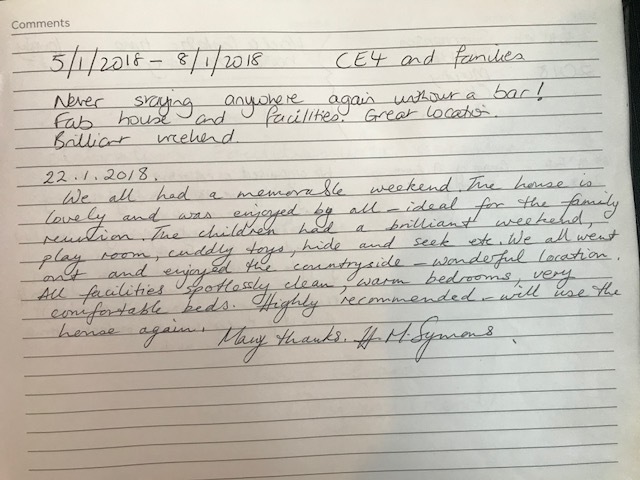 Comments
5/1/2018 - 8/1/2018 CE4 and families
Never staying anywhere again without a bar!
Fab house and facilities. Great location.
Brilliant weekend.
22.1.2018.
We all had a memorable weekend. The house is
lovely and was enjoyed by all - ideal for the family
reunion. The children had a brilliant weekend,
play room, cuddly toys, hide and seek etc. We all went
out and enjoyed the countryside - wonderful location.
All facilities spotlessly clean, warm bedrooms, very
comfortable beds. Highly recommended - will use the
house again.
Many thanks. M. Symons.